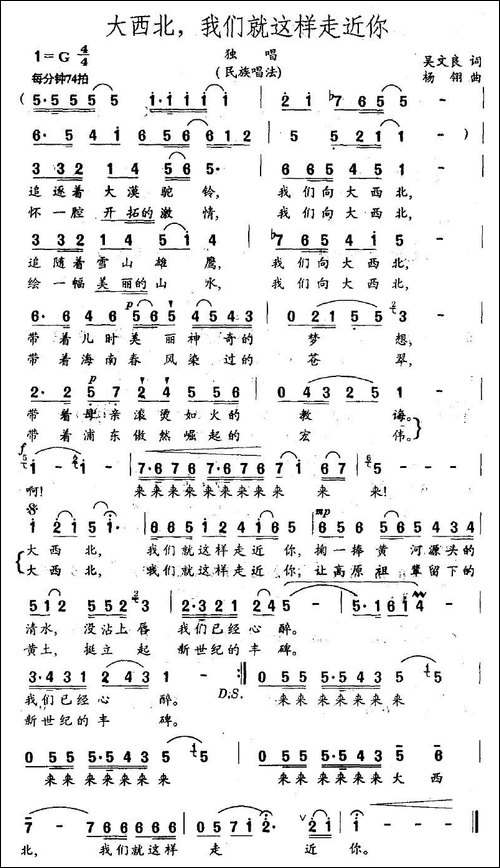 大西北，我们就这样走近你
1=G 4/4
独 唱
吴文良 词
每分钟74拍
(民族唱法)
杨 翎 曲
( 5·5 5 5 5 | 1·1 1 1 1 | 2 1 ♭7 6 5 5 | 5 - - - |
6· 5 4 1 | 6 5 6 6 1 2 | 5 5 2 1 1 | 1 - - - )
3 3 2 1 4 5 6 5· | 6 6 5 4 5 1 - |
追逐着大漠驼铃， 我们向大西北，
怀一腔开拓的激情， 我们向大西北，
3 3 2 1 4 5 1 4 | ♭7 6 5 4 1 5 - |
追随着雪山雄鹰， 我们向大西北，
绘一幅美丽的山水， 我们向大西北，
p
6· 6 4 6 6 5 4 5 6 | 0 2 1 5 5 3 - |
带着儿时美丽神奇的梦想，
带着海南春风染过的苍翠，
p
2· 2 5 7 2 4 5 5 6 | 0 4 3 2 5 1 - |
带着母亲滚烫如火的教诲。
带着浦东傲然崛起的宏伟。
f
1 - 1 - | 7·6 7 6 7·6 7 6 | 7 1 6 7 | 5 - - - |
啊！ 来来来来来来来来来来来！
mp
1 2 1 5 1· | 6 5 1 2 4 1 6 5 | 6 5 6 5 6 5 4 3 4 |
大西北， 我们就这样走近你，掬一捧黄河源头的
大西北， 我们就这样走近你；让高原祖辈留下的
5 1 2 5 2 3 | 2·3 2 1 2 4 5 | 5·1 6 1 4 |
清水，没沾上唇 我们已经心醉。
黄土，挺立起 新世纪的丰碑。
3·4 3 1 2 4 3 | 2 - - - :| 0 5 5 5·5 4 3 5 5 |
D.S.
我们已经心醉。 来来来来来来来
新世纪的丰碑。
0 5 5 5·5 4 3 5 5 | 0 5 5 5·5 4 3 5 6 |
来来来来来来来 来来来来来来大西
7 - 7 6 6 6 6 6 | 0 5 7 1 2· 2 1 | 1 - - - |
北， 我们就这样走近你。